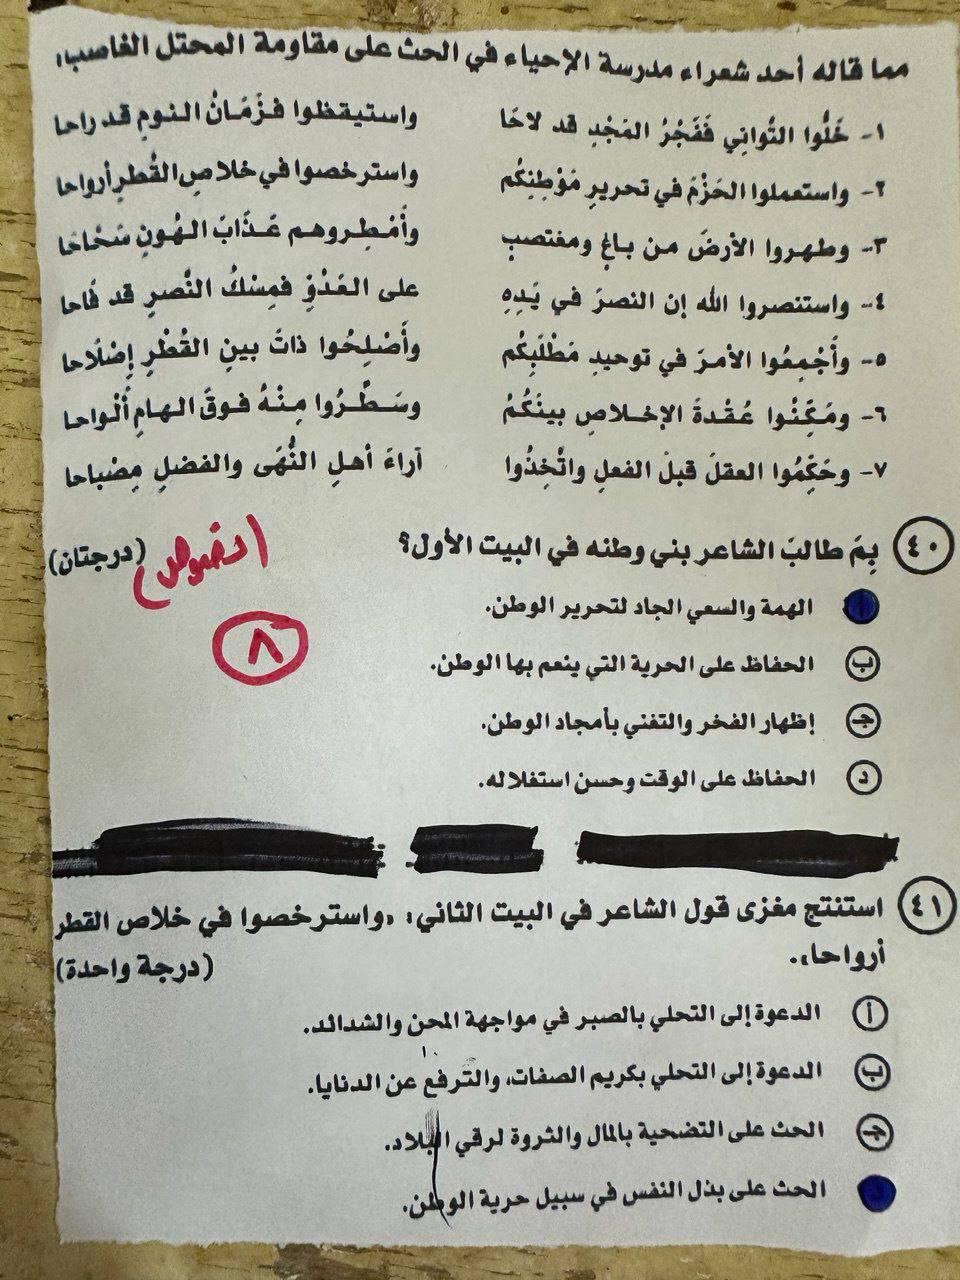 مما قاله أحد شعراء مدرسة الإحياء في الحث على مقاومة المحتل الغاصب:
١- خَلُّوا التَّوانِي فَفَجْرُ المَجْدِ قد لاحَا واستيقظوا فـزَمَـانُ الـنـومِ قـد راحا
٢- واستعملوا الحَزْمَ في تحريرِ مَوْطِنِكُم واسترخصوا في خلاصِ القُطرِ أرواحا
٣- وطهروا الأرضَ من باغٍ ومغتصبٍ وأَمْـطِـروهـم عَـذَابَ الـهُـونِ سَحَّاحَا
٤- واستنصروا الله إن النصرَ في يَدِهِ على العَدُوِّ فمِسْكُ النَّصرِ قد فَاحا
٥- وأَجْمِعُوا الأمرَ في توحيدِ مَطْلَبِكُم وأَصْلِحُوا ذاتَ بينِ القُطْرِ إِصْلَاحا
٦- ومَكِّنُوا عُقْدةَ الإخلاصِ بينَكُمُ وسَـطِّـرُوا مِنْهُ فوقَ الهامِ أَلْواحا
٧- وحَكِّمُوا العقلَ قبلَ الفعلِ واتَّخِذُوا آراءَ أهلِ النُّهَى والفضلِ مِصْباحا
٤٠ بِمَ طالبَ الشاعر بني وطنه في البيت الأول؟ (درجتان)
(نصوص)
الهمة والسعي الجاد لتحرير الوطن.
٨
ب الحفاظ على الحرية التي ينعم بها الوطن.
جـ إظهار الفخر والتغني بأمجاد الوطن.
د الحفاظ على الوقت وحسن استغلاله.
٤١ استنتج مغزى قول الشاعر في البيت الثاني: «واسترخصوا في خلاص القطر
أرواحا». (درجة واحدة)
أ الدعوة إلى التحلي بالصبر في مواجهة المحن والشدائد.
ب الدعوة إلى التحلي بكريم الصفات، والترفع عن الدنايا.
جـ الحث على التضحية بالمال والثروة لرقي البلاد.
الحث على بذل النفس في سبيل حرية الوطن.